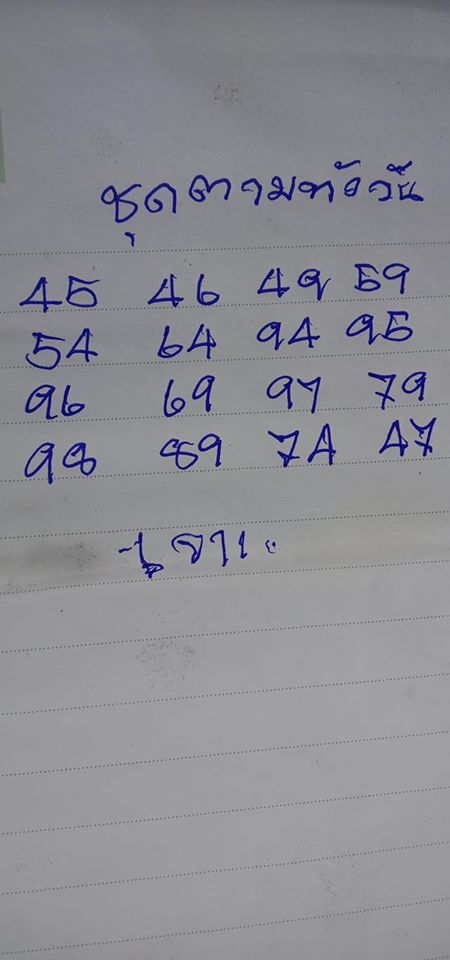 ชุดตามทั้งวัน
45 46 49 59
54 64 94 95
96 69 97 79
98 89 74 47